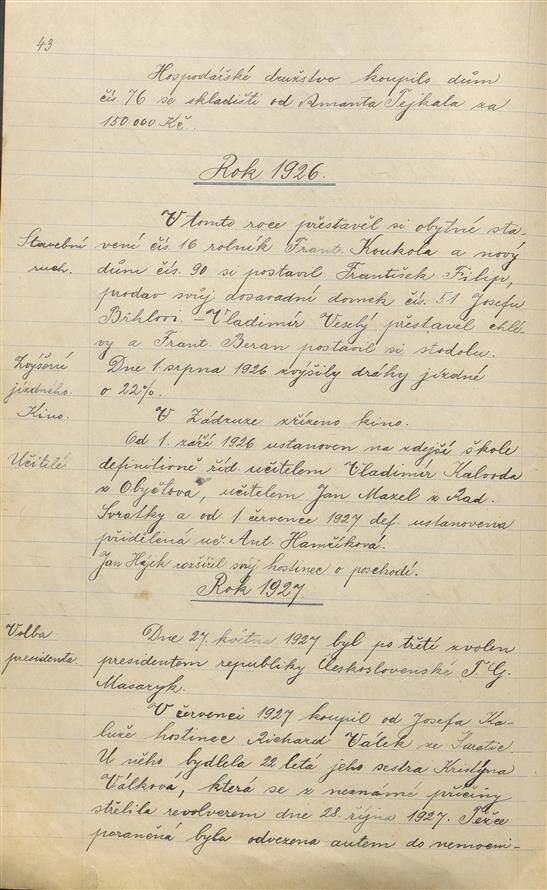 43
Hospodářské družstvo koupilo dům
čís. 76 se skladišti od Amanta Tejkala za
150.000 Kč.
Rok 1926.
V tomto roce přestavěl si obytné sta-
Stavební vení čís 16 rolník Frant. Koukola a nový
ruch. dům čís. 90 si postavil František Filip,
prodav svůj dosavadní domek čís. 51 Josefu
Bíhlovi. – Vladimír Veselý přestavěl chlé-
vy a Frant. Beran postavil si stodolu.
Zvýšené Dne 1 srpna 1926 zvýšily dráhy jízdné
jízdného. o 22%.
Kino. V Zádruze zřízeno kino.
Od 1. září 1926 ustanoven na zdejší škole
Učitelé definitivně říd. učitelem Vladimír Kalvoda
z Obyčtova, učitelem Jan Maxel z Rad.
Svratky a od 1. července 1927 def. ustanovena
přidělená uč. Ant. Hamčíková.
Jan Hájík rozšířil svůj hostinec o poschodí.
Rok 1927.
Volba Dne 27. května 1927 byl po třetí zvolen
presidenta. presidentem republiky Československé T. G.
Masaryk.
V červenci 1927 koupil od Josefa Ka-
luže hostinec Richard Válek ze Šaratic
U něho bydlela 22 letá jeho sestra Kristýna
Válková, která se z neznámé příčiny
střelila revolverem dne 28. října 1927. Těžce
poraněná byla odvezena autem do nemocni-